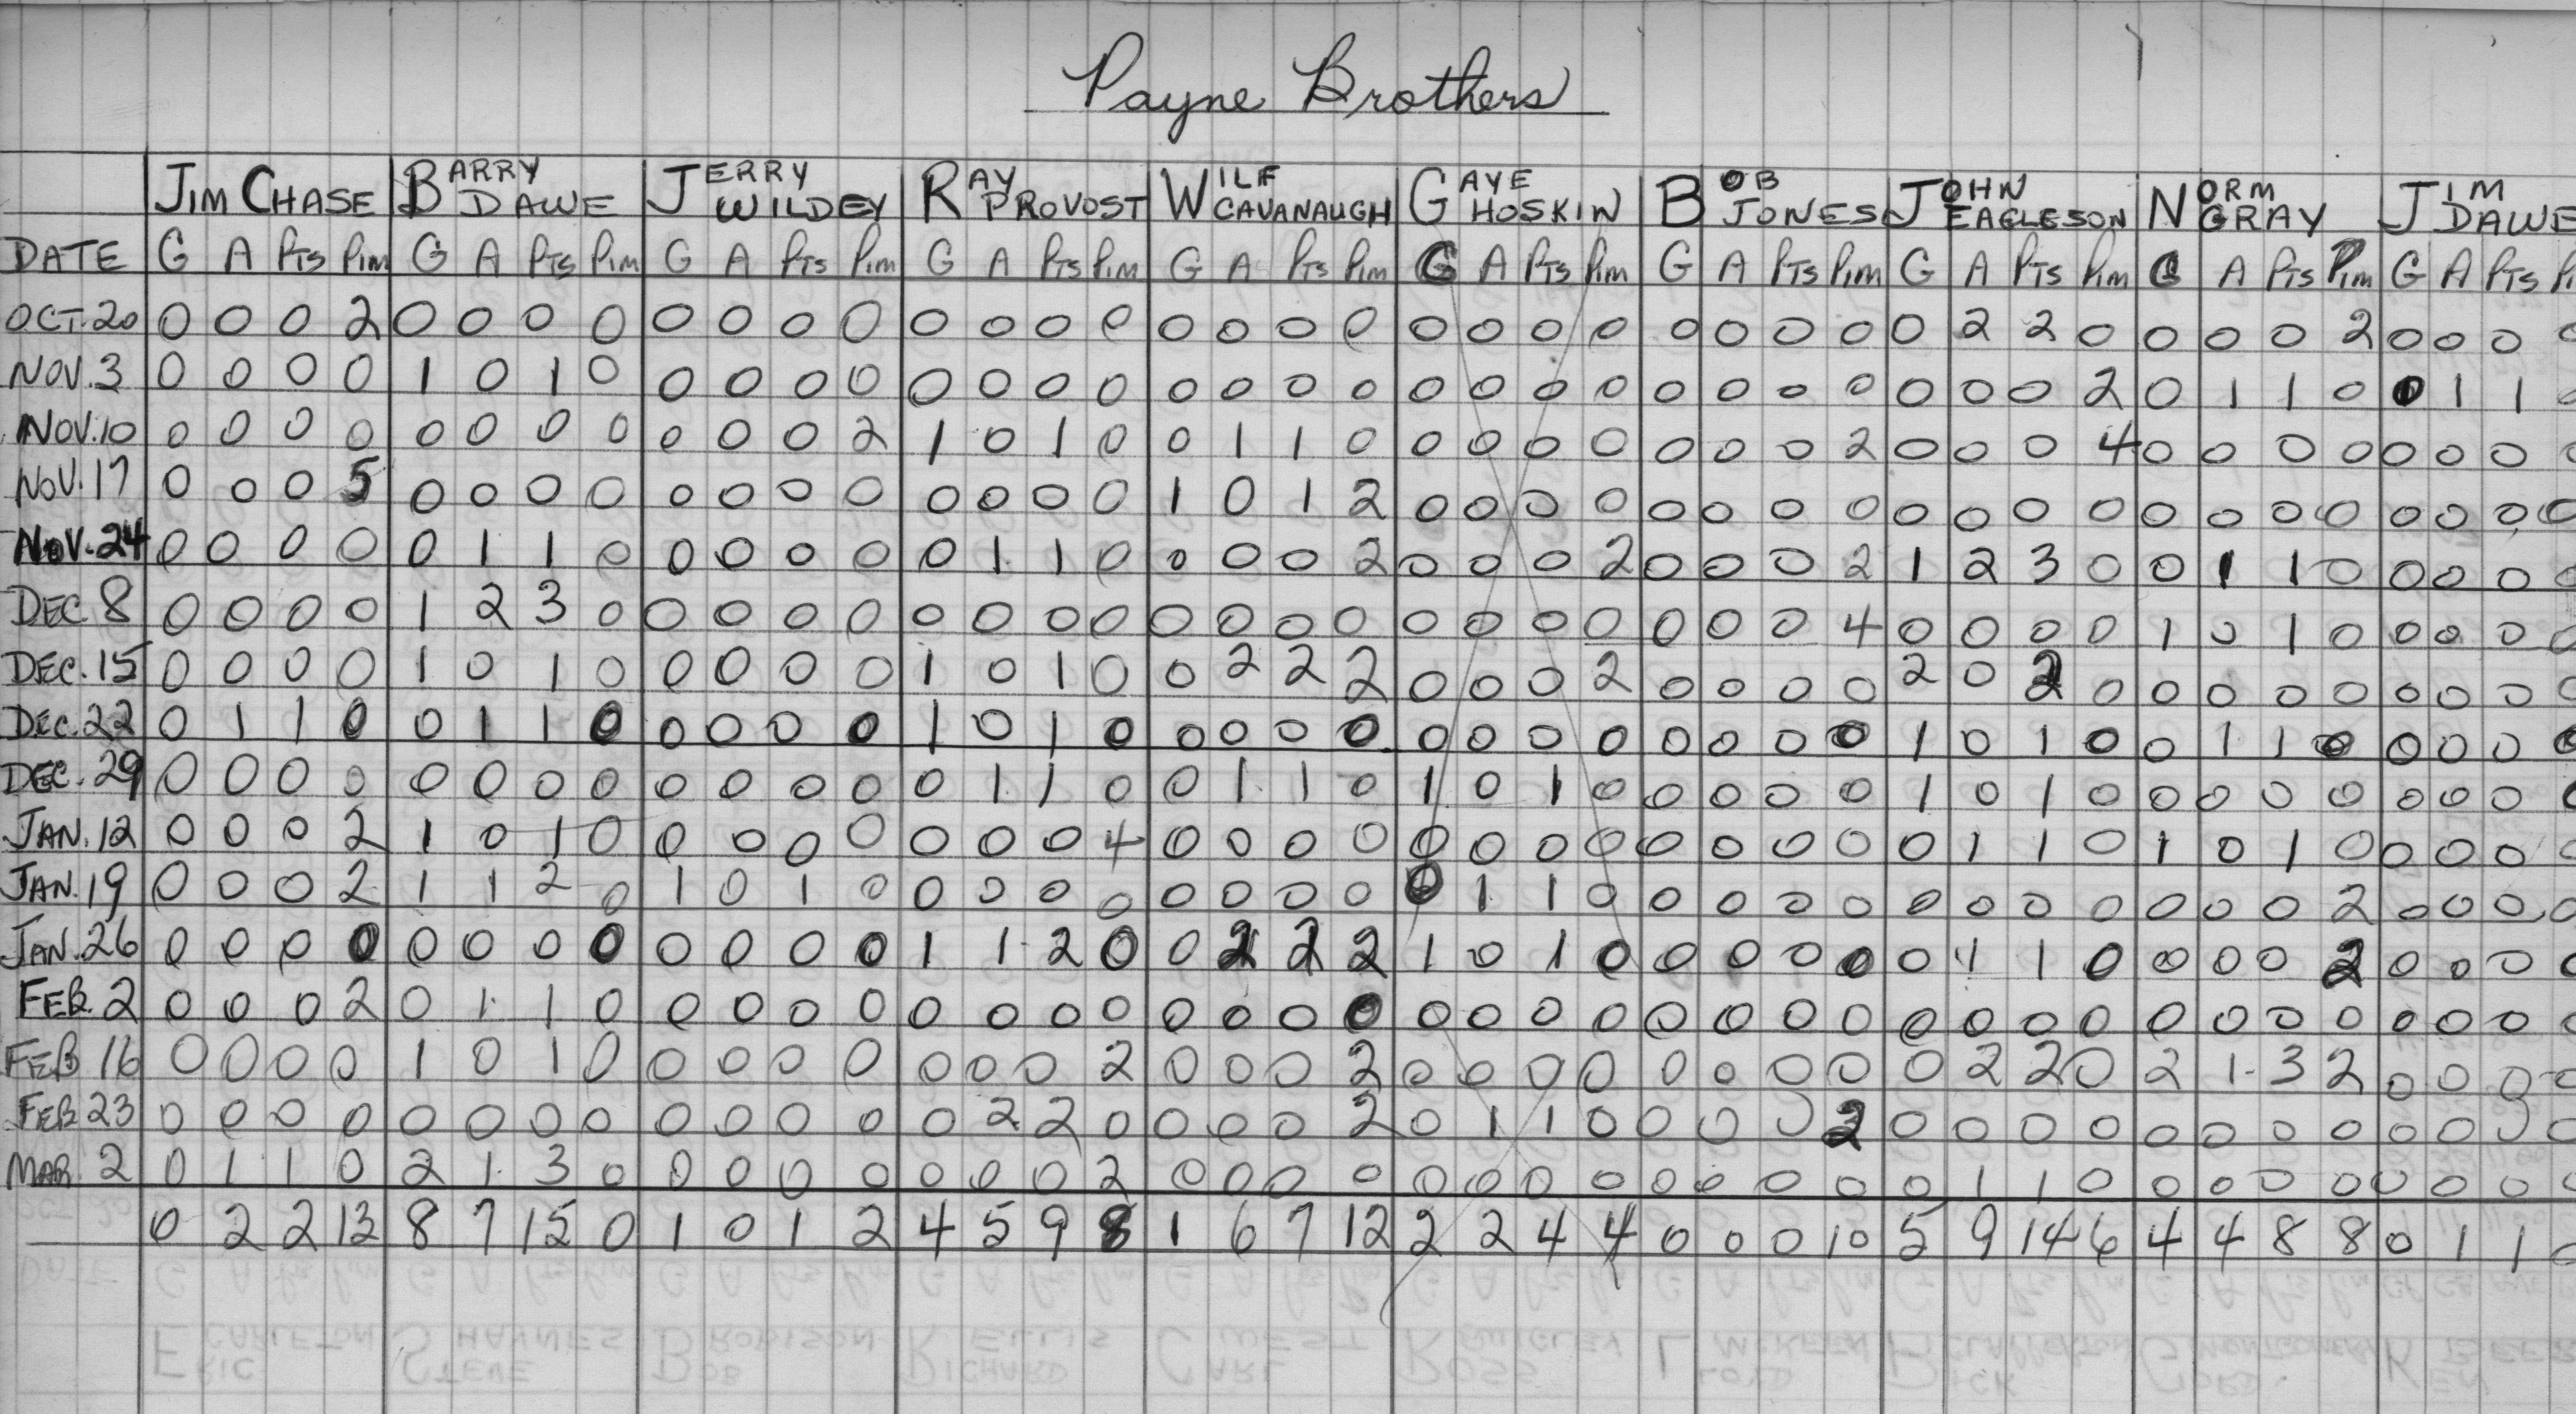 Payne Brothers
JIM CHASE BARRY DAWE JERRY WILDEY RAY PROVOST WILF CAVANAUGH GAYE HOSKIN BOB JONES JOHN EAGLESON NORM GRAY JIM DAWE
DATE G A PTS PIM G A PTS PIM G A PTS PIM G A PTS PIM G A PTS PIM G A PTS PIM G A PTS PIM G A PTS PIM G A PTS PIM G A PTS
OCT.20 0 0 0 2 0 0 0 0 0 0 0 0 0 0 0 0 0 0 0 0 0 0 0 0 0 0 0 0 0 2 2 0 0 0 0 2 0 0 0 0
NOV.3 0 0 0 0 1 0 1 0 0 0 0 0 0 0 0 0 0 0 0 0 0 0 0 0 0 0 0 0 0 0 0 2 0 1 1 0 0 1 1 0
NOV.10 0 0 0 0 0 0 0 0 0 0 0 2 1 0 1 0 0 1 1 0 0 0 0 0 0 0 0 2 0 0 0 4 0 0 0 0 0 0 0 0
NOV.17 0 0 0 5 0 0 0 0 0 0 0 0 0 0 0 0 1 0 1 2 0 0 0 0 0 0 0 0 0 0 0 0 0 0 0 0 0 0 0 0
NOV.24 0 0 0 0 0 1 1 0 0 0 0 0 0 1 1 0 0 0 0 2 0 0 0 2 0 0 0 2 1 2 3 0 0 1 1 0 0 0 0 0
DEC. 8 0 0 0 0 1 2 3 0 0 0 0 0 0 0 0 0 0 0 0 0 0 0 0 0 0 0 0 4 0 0 0 0 1 0 1 0 0 0 0 0
DEC. 15 0 0 0 0 1 0 1 0 0 0 0 0 1 0 1 0 0 2 2 2 0 0 0 2 0 0 0 0 2 0 2 0 0 0 0 0 0 0 0 0
DEC. 22 0 1 1 0 0 1 1 0 0 0 0 0 1 0 1 0 0 0 0 0 0 0 0 0 0 0 0 0 1 0 1 0 0 1 1 0 0 0 0 0
DEC. 29 0 0 0 0 0 0 0 0 0 0 0 0 0 1 1 0 0 1 1 0 1 0 1 0 0 0 0 0 1 0 1 0 0 0 0 0 0 0 0 0
JAN. 12 0 0 0 2 1 0 1 0 0 0 0 0 0 0 0 4 0 0 0 0 0 0 0 0 0 0 0 0 0 1 1 0 1 0 1 0 0 0 0 0
JAN. 19 0 0 0 2 1 1 2 0 1 0 1 0 0 0 0 0 0 0 0 0 0 1 1 0 0 0 0 0 0 0 0 0 0 0 0 2 0 0 0 0
JAN. 26 0 0 0 0 0 0 0 0 0 0 0 0 1 1 2 0 0 2 2 2 1 0 1 0 0 0 0 0 0 1 1 0 0 0 0 2 0 0 0 0
FEB. 2 0 0 0 2 0 1 1 0 0 0 0 0 0 0 0 0 0 0 0 0 0 0 0 0 0 0 0 0 0 0 0 0 0 0 0 0 0 0 0 0
FEB 16 0 0 0 0 1 0 1 0 0 0 0 0 0 0 0 2 0 0 0 2 0 0 0 0 0 0 0 0 0 2 2 0 2 1 3 2 0 0 0 0
FEB 23 0 0 0 0 0 0 0 0 0 0 0 0 0 2 2 0 0 0 0 2 0 1 1 0 0 0 0 2 0 0 0 0 0 0 0 0 0 0 0 0
MAR. 2 0 1 1 0 2 1 3 0 0 0 0 0 0 0 0 2 0 0 0 0 0 0 0 0 0 0 0 0 0 1 1 0 0 0 0 0 0 0 0 0
0 2 2 13 8 7 15 0 1 0 1 2 4 5 9 8 1 6 7 12 2 2 4 4 0 0 0 10 5 9 14 6 4 4 8 8 0 1 1 0